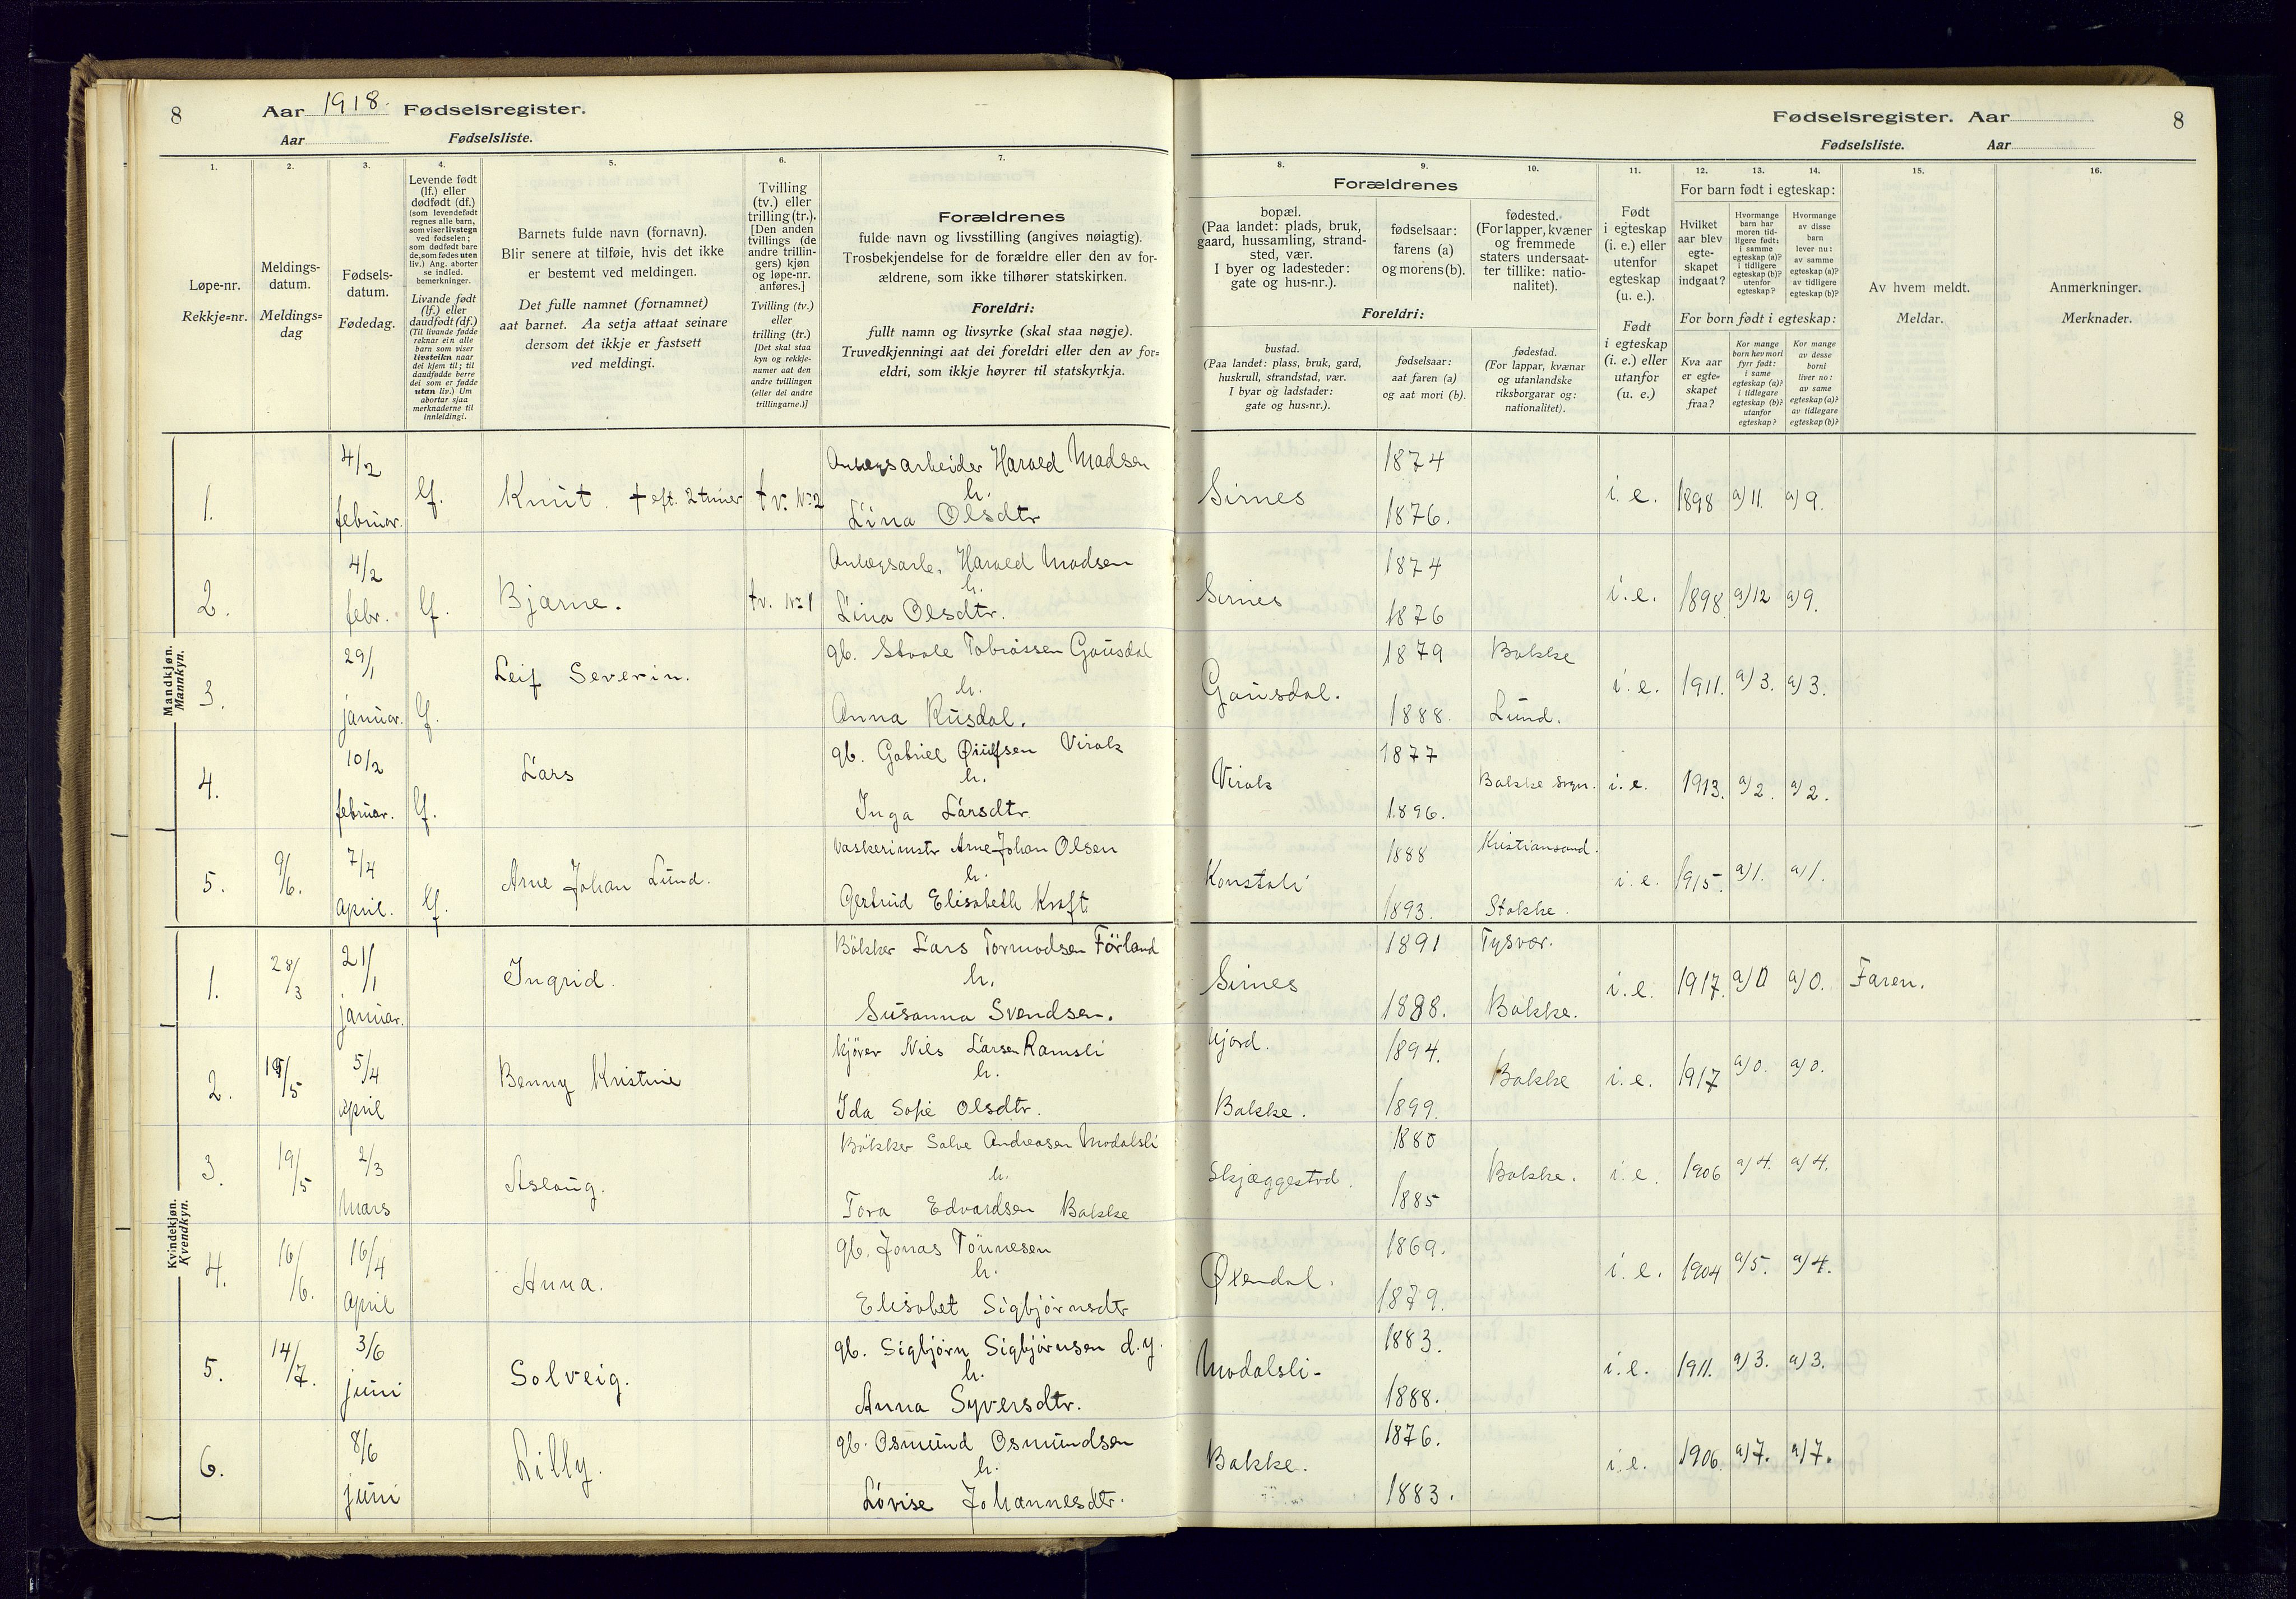 8 Aar 1918. Fødselsregister.
Aar Fødselsliste.
Fødselsregister. Aar 8
Fødselsliste. Aar
1. 2. 3. 4. 5. 6. 7.
Løpe-nr.
Rekkje-nr.
Meldings-
datum.
Meldings-
dag
Fødsels-
datum.
Fødedag.
Levende født
(lf.) eller
dødfødt (df.)
(som levendefødt
regnes alle barn,
som viser livstegn
ved fødselen;
som dødfødt bare
de, som fødes uten
liv.) Ang. aborter
se indled.
bemerkninger.
Livande født
(lf.) eller
daudfødt (df.)
(Til livande fødde
reknar ein alle
barn som viser
livsteikn naar
dei kjem til; til
daudfødde berre
dei som er fødde
utan liv.) Um
abortar sjaa
merknaderne til
innleidingi.
Barnets fulde navn (fornavn).
Blir senere at tilføie, hvis det ikke
er bestemt ved meldingen.
Det fulle namnet (fornamnet)
aat barnet. Aa setja attaat seinare
dersom det ikkje er fastsett
ved meldingi.
Tvilling
(tv.) eller
trilling (tr.).
[Den anden
tvillings (de
andre trillin-
gers) kjøn
og løpe-nr.
anføres.]
Tvilling (tv.)
eller
trilling (tr.)
[Det skal staa
kyn og rekkje-
numer aat den
andre tvillingen
(eller dei andre
trillingarne.)]
Forældrenes
fulde navn og livsstilling (angives nøiagtig).
Trosbekjendelse for de forældre eller den av for-
ældrene, som ikke tilhører statskirken.
Foreldri:
fullt namn og livsyrke (skal staa nøgje).
Truvedkjenningi aat dei foreldri eller den av for-
eldri, som ikkje høyrer til statskyrkja.
8. 9. 10. 11. 12. 13. 14. 15. 16.
Forældrenes
bopæl.
(Paa landet: plads, bruk,
gaard, hussamling, strand-
sted, vær.
I byer og ladesteder:
gate og hus-nr.).
fødselsaar:
farens (a)
og morens (b).
fødested.
(For lapper, kvæner
og fremmede
staters undersaat-
ter tillike: natio-
nalitet).
Foreldri:
bustad.
(Paa landet: plass, bruk, gard,
huskrull, strandstad, vær.
I byar og ladstader:
gate og hus-nr.).
fødselsaar:
aat faren (a)
og aat mori (b).
fødestad.
(For lappar, kvænar
og utanlandske
riksborgarar og:
nationalitet).
Født
i egteskap
(i. e.) eller
utenfor
egteskap
(u. e.).
Født
i egteskap
(i. e.) eller
utanfor
(u. e.)
For barn født i egteskap:
Hvilket
aar blev
egte-
skapet
indgaat?
Hvormange
barn har
moren tid-
ligere født:
i samme
egteskap (a)?
i tidligere
egteskap (b)?
utenfor
egteskap?
Hvormange
av disse
barn
lever nu:
av samme
egteskap (a)?
av tidligere
egteskap (b)?
For born født i egteskap:
Kva aar
er egte-
skapet
fraa?
Kor mange
born hev mori
fyrr født:
i same
egteskap (a)?
i tidlegare
egteskap (b)?
utanfor
egteskap?
Kor mange
av desse
borni
liver no:
av same
egteskap (a)?
av tidlegare
egteskap (b)?
Av hvem meldt.
Meldar.
Anmerkninger.
Merknader.
Mandkjøn.
Mannkyn.
1. 4/2 februar. lf. Knut. † eft. 2 timer tv. No 2
Anlægsarbeider Harald Madsen
h.
Lina Olsdtr
Sirnes 1874 1876. i. e. 1898 a) 11. a) 9.
2. 4/2 febr. lf. Bjarne. tv. No 1
Anlægsarb. Harald Madsen
h.
Lina Olsdtr.
Sirnes 1874 1876 i. e. 1898 a) 12 a) 9.
3. 29/1 januar. lf. Leif Severin.
gb. Staale Tobiassen Gausdal
h.
Anna Rusdal.
Gausdal. 1879 Bakke 1888. Lund. i. e. 1911. a) 3. a) 3.
4. 10/2 februar. lf. Lars
gb. Gabriel Virak
h.
Inga Larsdtr
Virak 1877 1896. Bakke sogn. i. e. 1913. a) 2. a) 2.
5. 9/6. 7/4 April. lf. Arne Johan Lund.
Vaskerimstr Arne Johan Olsen
h.
Gertrud Elisabeth Kraft
Konstali 1888 Kristiansand. 1893. Stokke. i. e. 1915. a) 1. a) 1.
Kvindekjøn.
Kvendkyn.
1. 28/3 21/1 januar. Ingrid.
Bökker Lars Tormodsen Förland
h.
Susanna Svendsen.
Sirnes 1891 Tysvær. 1888. Bakke. i. e. 1917. a) 0 a) 0. Faren.
2. 19/5 5/4 april Benny Kristine
Kjörer Nils Larsen Ramsli
h.
Ida Sofie Olsdtr.
Njard. Bakke. 1894. 1899. Bakke i. e. 1917 a) 0. a) 0.
3. 19/5 2/3 Mars Aslaug.
Bökker Salve Andreasen Modalsli
h.
Tora Edvardsen Bakke
Skjæggestad. 1880 1885 Bakke. i. e. 1906 a) 4. a) 4.
4. 16/6. 16/4 April Anna.
gb. Jonas Tönnesen
h.
Elisabet Sigbjörnsdtr
Øxendal. 1869. 1879. i. e. 1904 a) 5. a) 4.
5. 14/7. 3/6 juni Solveig.
gb. Sigbjörn Sigbjörnsen d. y.
h.
Anna Syversdtr.
Modalsli- 1883. 1888. i. e. 1911. a) 3. a) 3.
6. 8/6 juni Lilly.
gb. Osmund Osmundsen
h.
Lovise Johannesdtr.
Bakke. 1876. 1883. i. e. 1906. a) 7. a) 7.